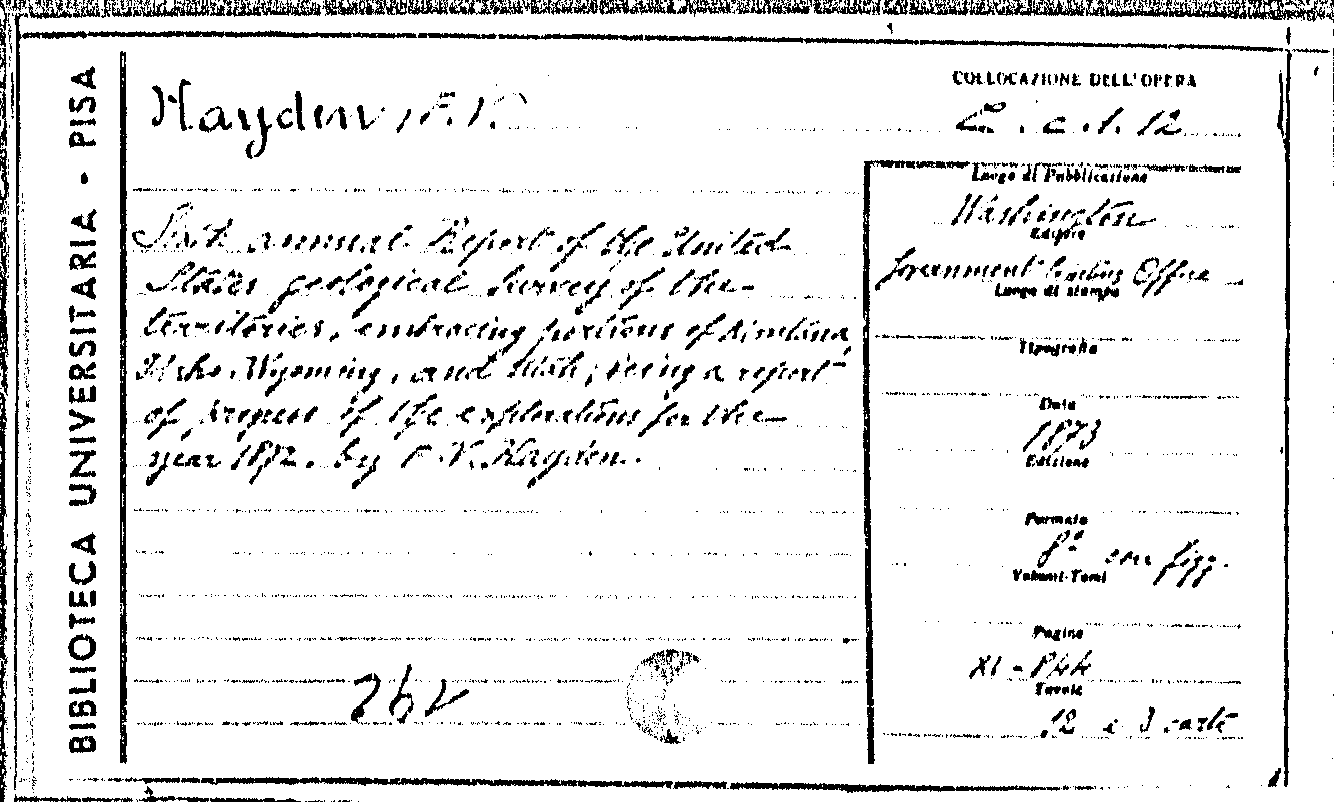 BIBLIOTECA UNIVERSITARIA - PISA
Hayden, F. V.
COLLOCAZIONE DELL'OPERA
c. 1. 12
Sixth annual Report of the United
States geological Survey of the
territories, embracing portions of Montana,
Idaho, Wyoming, and Utah; being a report
of progress of the explorations for the
year 1872. by F. V. Hayden.
262
Luogo di Pubblicazione
Washington
Editore
Government Printing Office
Luogo di stampa
Tipografia
Data
1873
Edizione
Formato
8° con figg.
Volumi-Tomi
Pagine
XI - 844
Tavole
12 e 3 carte